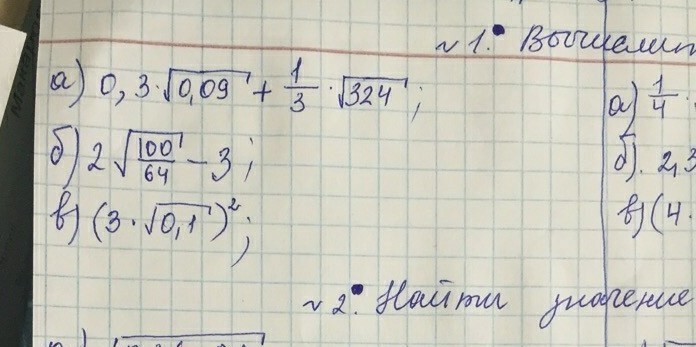 ~ 1. Вычислит
а) 0,3·√0,09 + 1/3 · √324 ;
б) 2 √100/64 − 3 ;
в) (3 · √0,1)² ;
а) 1/4 ·
б). 2,3
в) (4 ·
~ 2. Найти значение